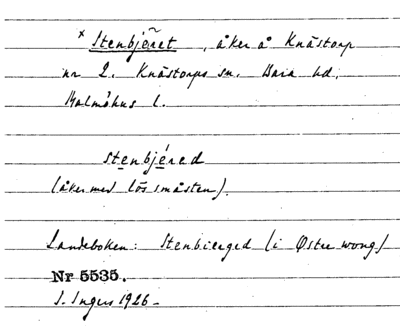 * Stenbjẽret, åker å Knästorp
nr 2. Knästorps sn. Bara hd.
Malmöhus l.
stenbjéred
(åker med lös småsten).
Landeboken: Stenbierged (i Øster wong)
Nr 5535.
I. Ingers 1926-